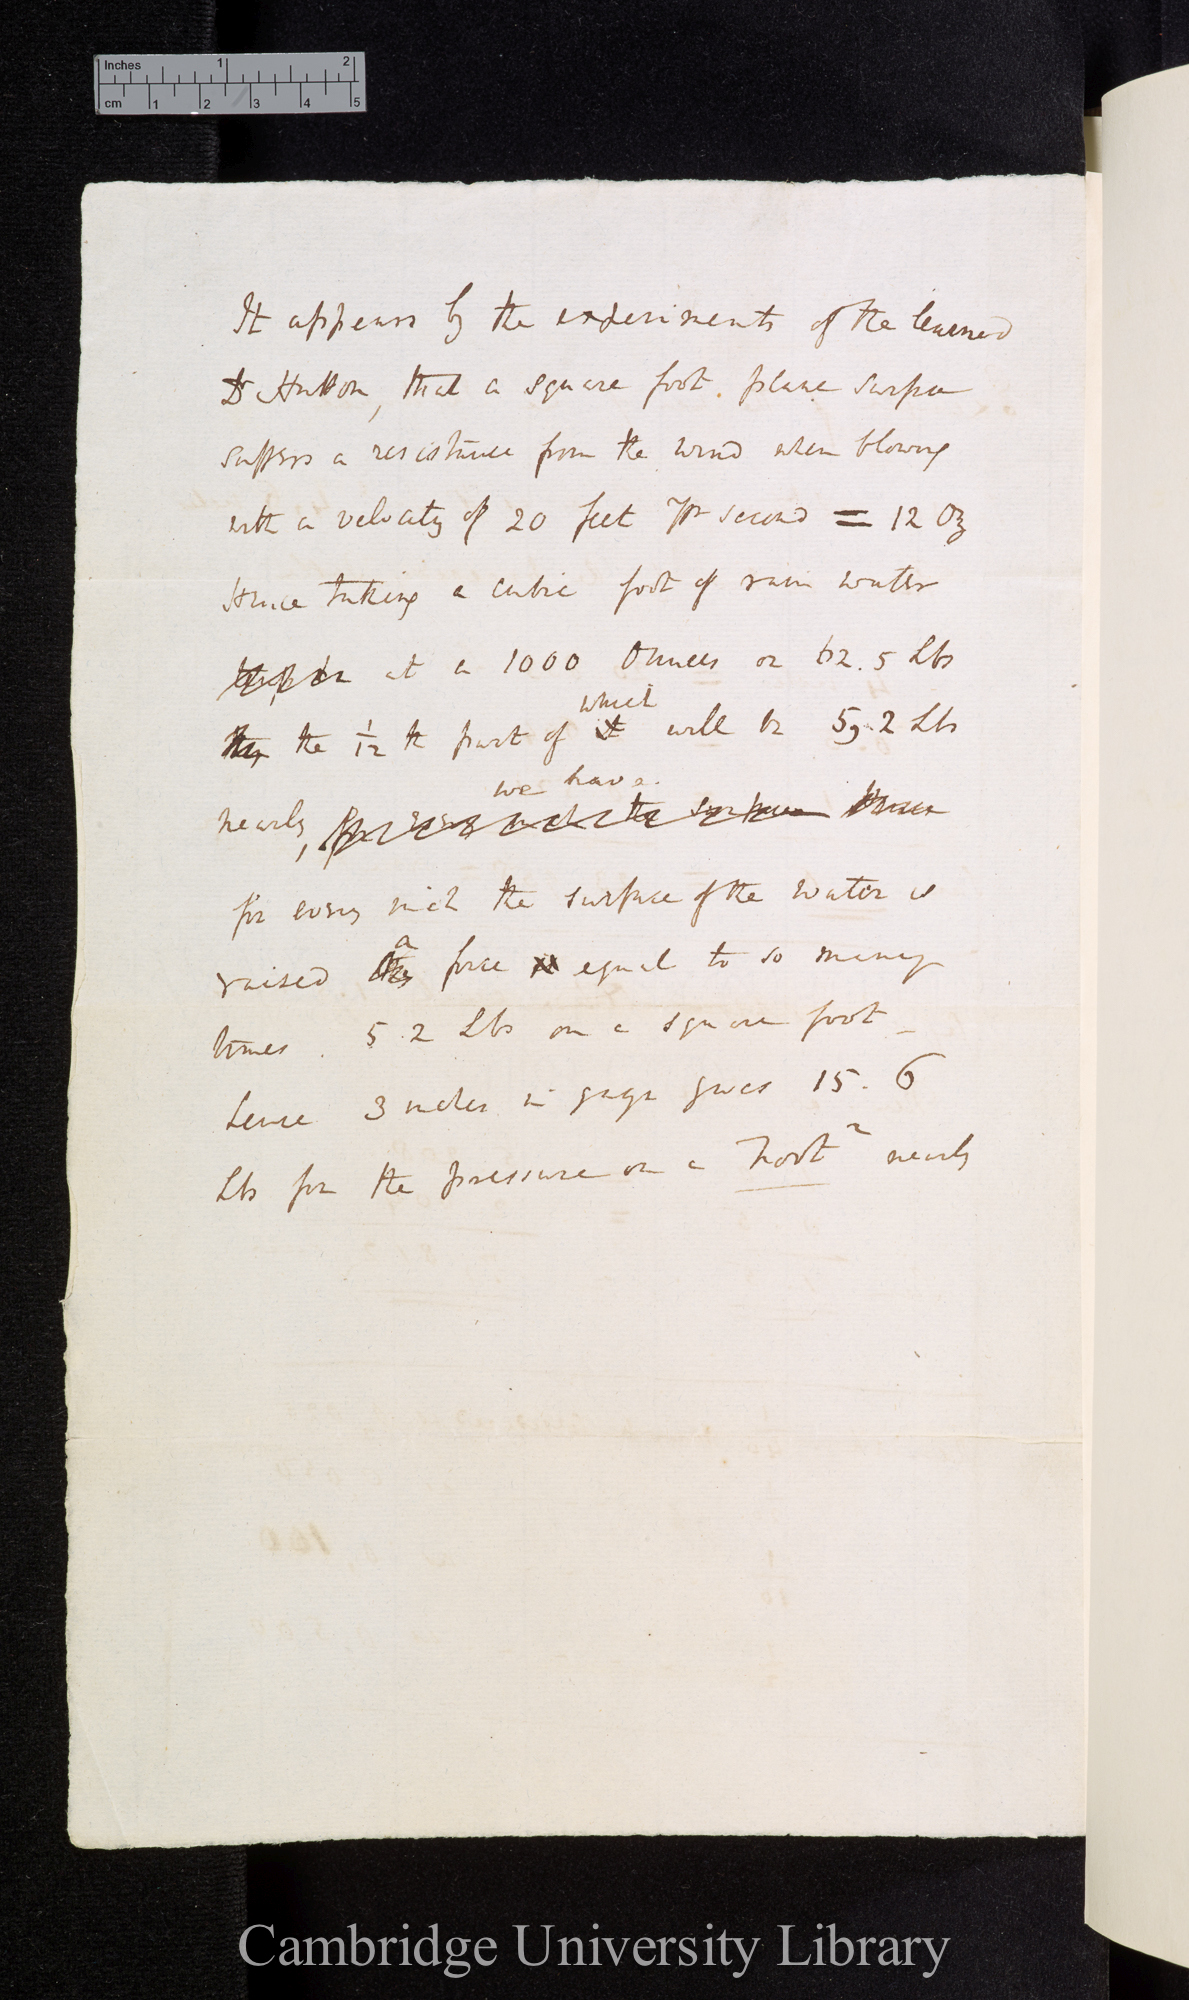 Inches 1 2
cm 1 2 3 4 5
It appears by the experiments of the learned
Dr Hutton, that a square foot. plane surface
suffers a resistance from the wind when blowing
with a velocity of 20 feet pr second = 12 Oz
Hence taking a cubic foot of rain water
at a 1000 Ounces or 62.5 Lbs
which
the 1/12 th part of it will be 5,.2 Lbs
we have
nearly, for every inch the surface
for every inch the surface of the water is
a
raised the force equal to so many
times . 5.2 Lbs on a square foot_
hence 3 inches in gage gives 15.6
Lbs for the pressure on a Foot 2 nearly
Cambridge University Library